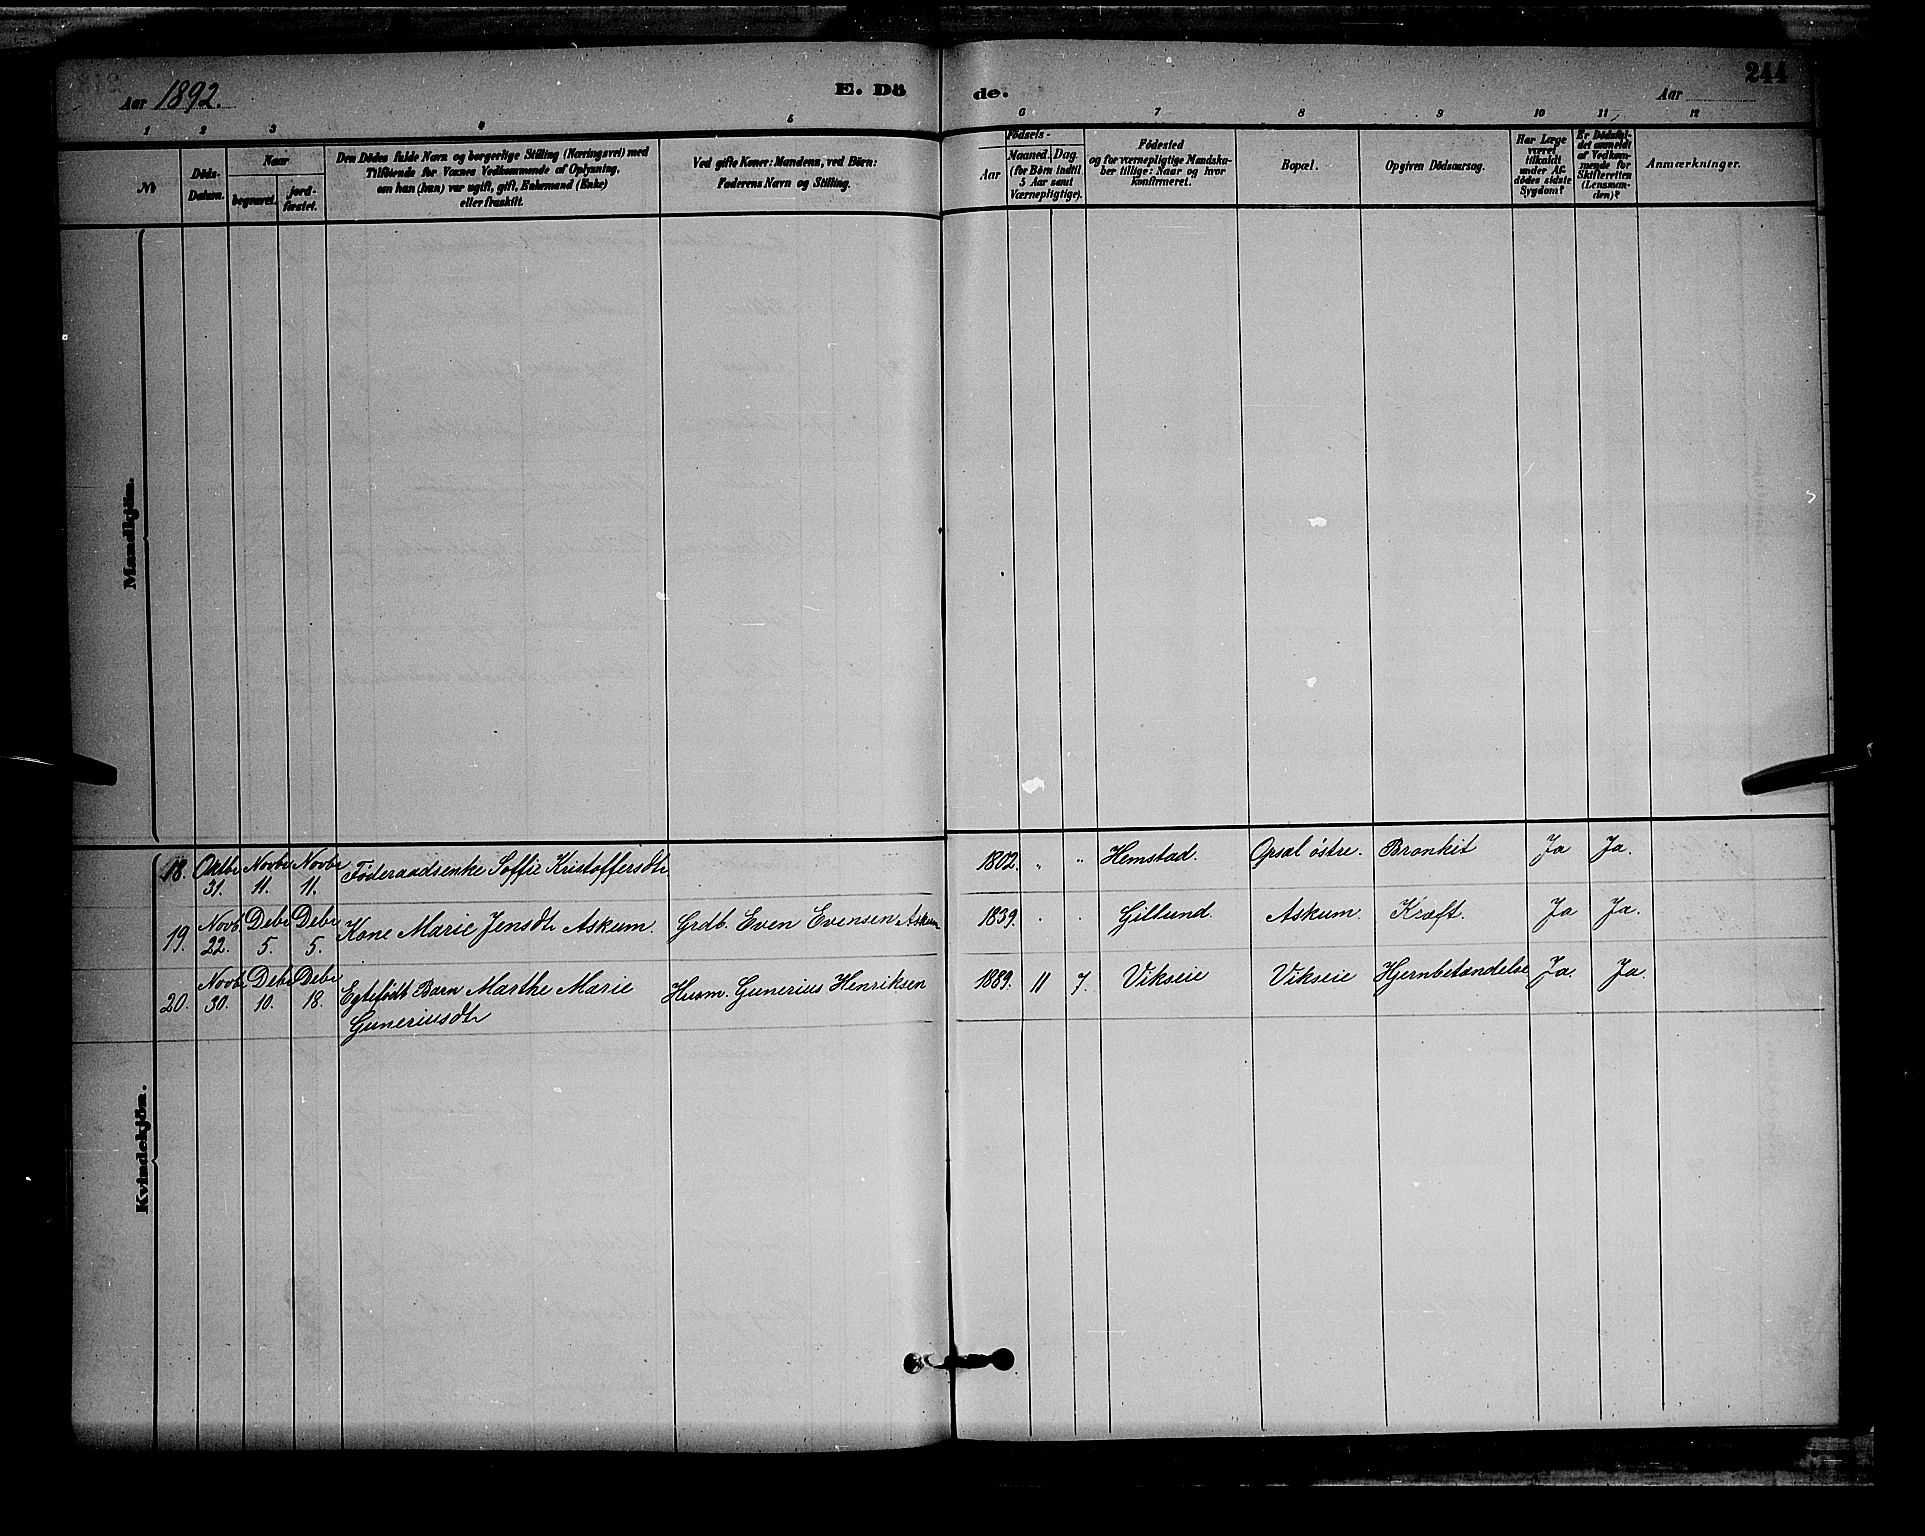 Aar 1892. E. Dö de. Aar 244
1 2 3 4 5 6 7 8 9 10 11 12
№
Döds-
Datum.
Naar
begravet.
jord-
fæstet.
Den Dödes fulde Navn og borgerlige Stilling (Næringsvei) med
Tilföiende for Voxnes Vedkommende af Oplysning,
om han (hun) var ugift, gift, Enkemand (Enke)
eller fraskilt.
Ved gifte Koner: Mandens, ved Börn:
Faderens Navn og Stilling.
Födsels-
Aar
Maaned. Dag.
(for Börn indtil
5 Aar samt
Værnepligtige).
Födested
og for værnepligtige Mandska-
ber tillige: Naar og hvor
konfirmeret.
Bopæl.
Opgiven Dödsaarsog.
Har Læge
været
tilkaldt
under Af-
dödes sidste
Sygdom?
Er Dödsfal-
det anmeldt
af Vedkom-
mende for
Skifteretten
(Lensman-
den)?
Anmærkninger.
Mandkjön.
Kvindekjön.
18. Oktbr 31. Novbr 11. Novbr 11. Föderaadsenke Soffie Kristoffersdtr 1802. " " Hemstad. Opsal östre. Bronkit Ja Ja.
19. Novb. 22. Debr 5. Debr 5. Kone Marie Jensdtr Askum. Grdb. Even Evensen Askum 1839. . . Gillund. Askum. Kræft. Ja Ja.
20. Novbr 30. Debr 10. Debr 18. Egtefödt Barn Marthe Marie Husm. Gunerius Henriksen 1889. 11 7. Vikseie Vikseie Hjernbetændelse Ja. Ja.
Guneriusdtr